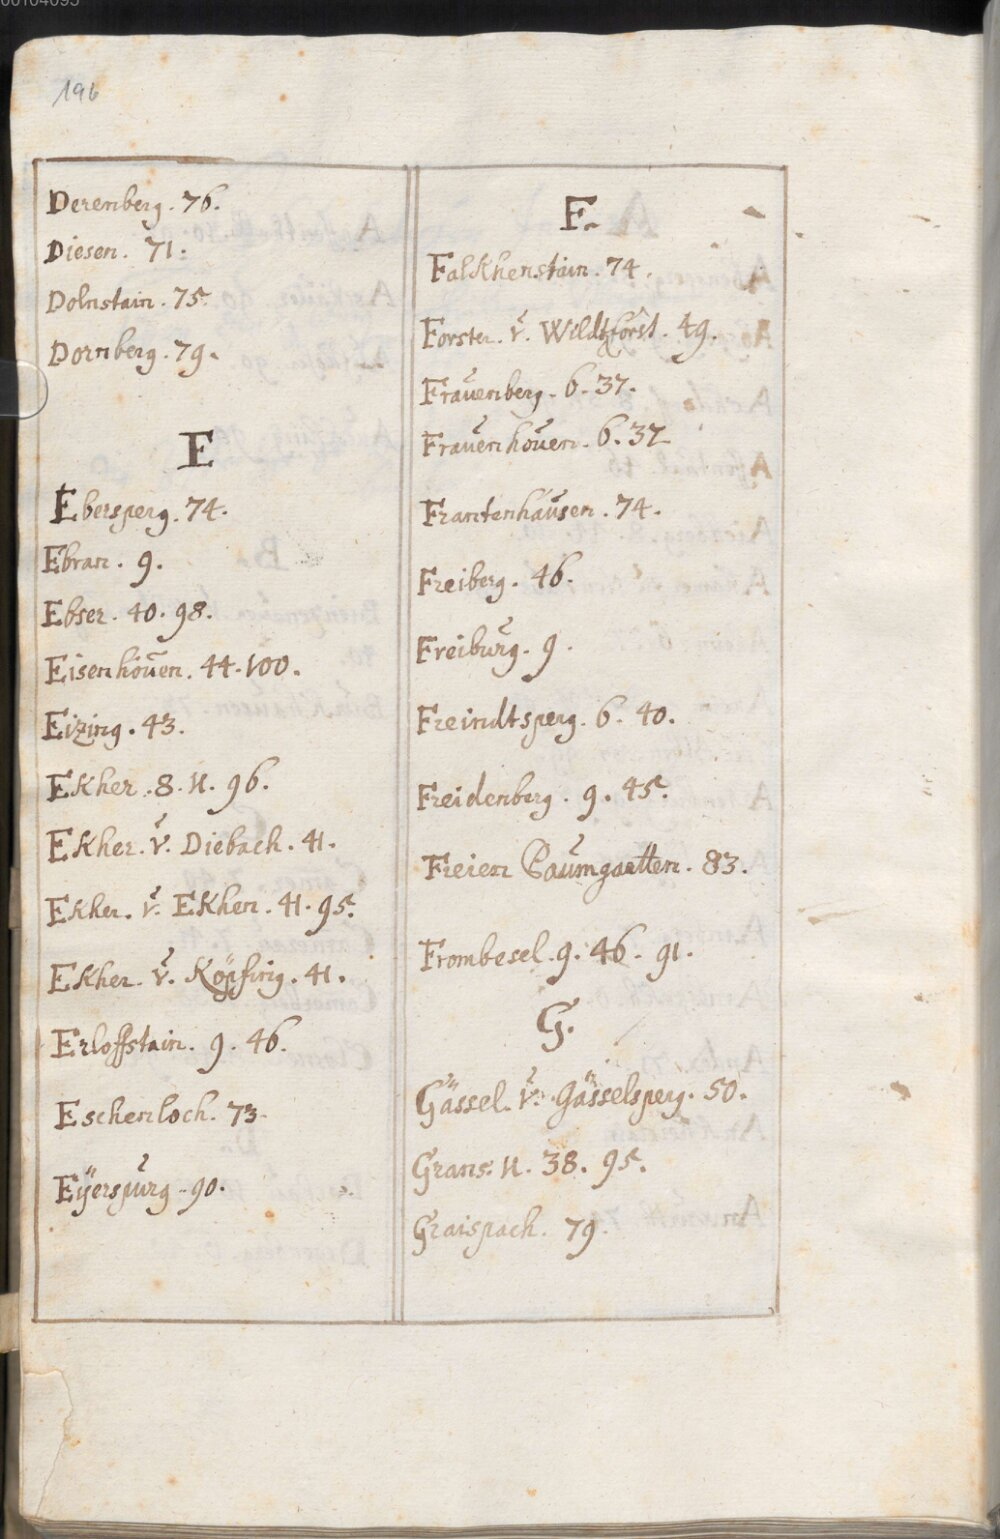 196
Derenberg. 76.
Diesen. 71:
Dolnstain. 75.
Dornberg. 79.
E
Ebersperg. 74.
Ebran. 9.
Ebser. 40. 98.
Eisenhouen. 44. 100.
Eizing. 43.
Ekher. 8. 11. 96.
Ekher. v. Diebach. 41.
Ekher. v. Ekhen. 41. 95.
Ekher. v. Köpfing. 41.
Erloffstain. 9. 46.
Eschenloch. 73.
Eÿerspurg. 90.
F.
Falkhenstain. 74.
Forster. v. Wildtforst. 49.
Frauenberg. 6. 37.
Frauenhouen. 6. 37
Frantenhausen. 74.
Freiberg. 46.
Freiburg. 9.
Freindtsperg. 6. 40.
Freidenberg. 9. 45.
Freien Baumgartten. 83.
Frombesel. 9. 46. 91.
G.
Gässel. v. Gässelsperg. 50.
Grans. 11. 38. 95.
Graispach. 79.